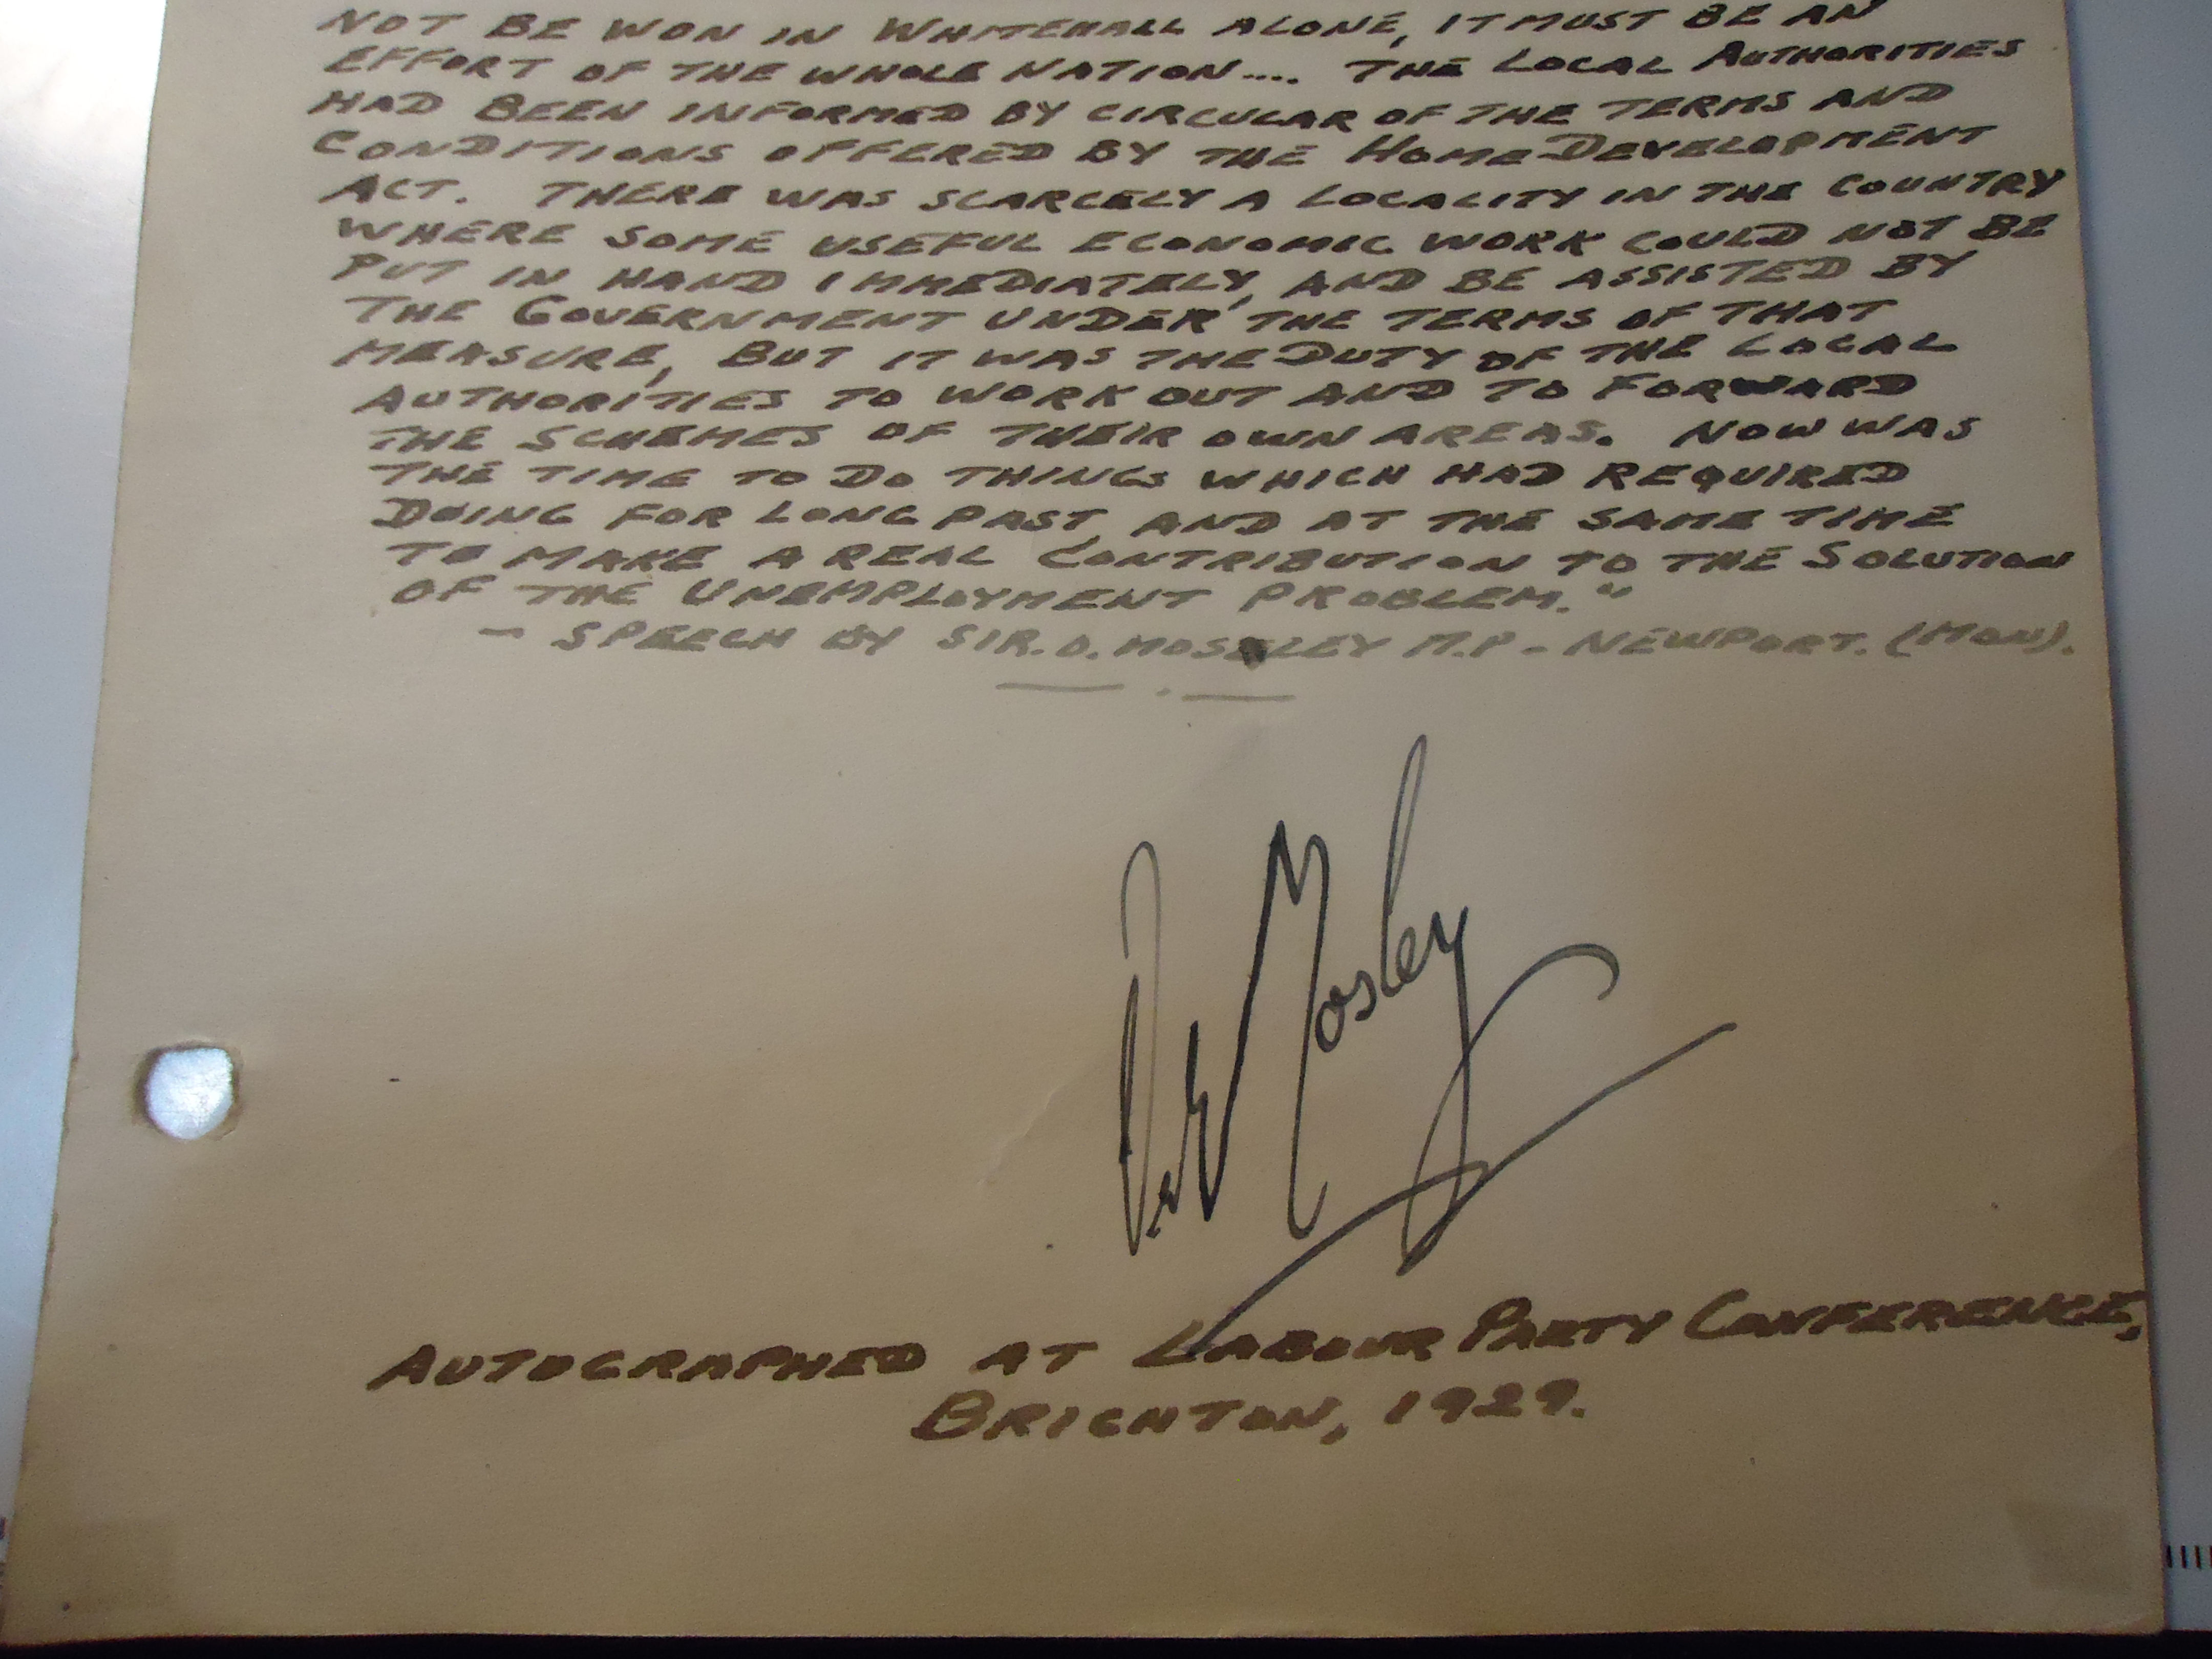 NOT BE WON IN WHITEHALL ALONE, IT MUST BE AN
EFFORT OF THE WHOLE NATION.... THE LOCAL AUTHORITIES
HAD BEEN INFORMED BY CIRCULAR OF THE TERMS AND
CONDITIONS OFFERED BY THE HOME DEVELOPMENT
ACT. THERE WAS SCARCELY A LOCALITY IN THE COUNTRY
WHERE SOME USEFUL ECONOMIC WORK COULD NOT BE
PUT IN HAND IMMEDIATELY, AND BE ASSISTED BY
THE GOVERNMENT UNDER THE TERMS OF THAT
MEASURE, BUT IT WAS THE DUTY OF THE LOCAL
AUTHORITIES TO WORK OUT AND TO FORWARD
THE SCHEMES OF THEIR OWN AREAS. NOW WAS
THE TIME TO DO THINGS WHICH HAD REQUIRED
DOING FOR LONG PAST, AND AT THE SAME TIME
TO MAKE A REAL CONTRIBUTION TO THE SOLUTION
OF THE UNEMPLOYMENT PROBLEM."
- SPEECH BY SIR. O. MOSLEY M.P. - NEWPORT. (MON).
Mosley
AUTOGRAPHED AT LABOUR PARTY CONFERENCE,
BRIGHTON, 1929.